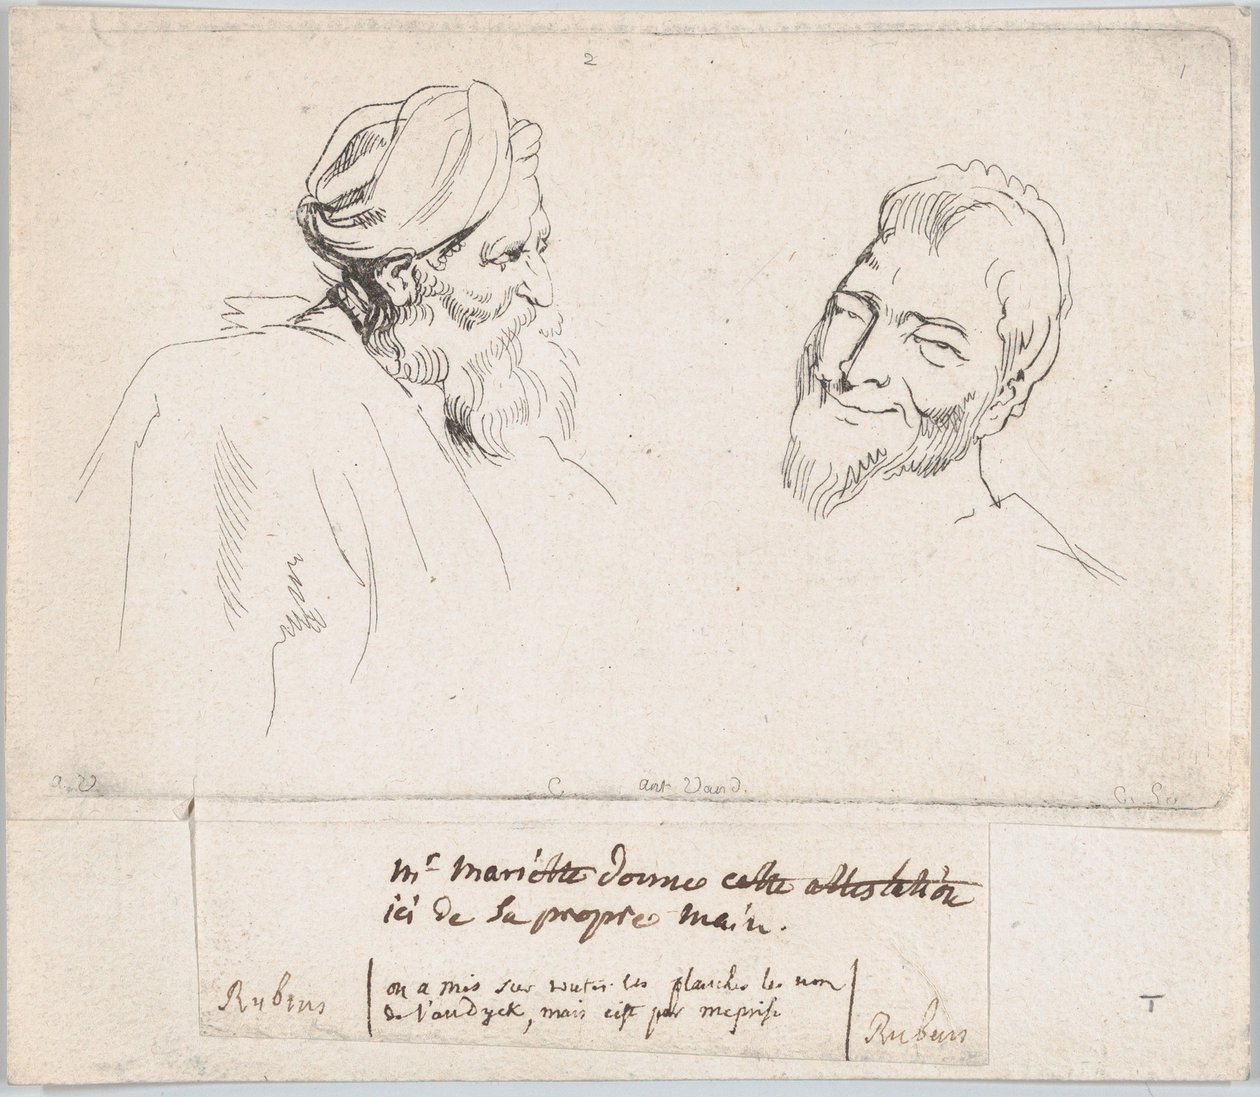 2
1
a. V
C
ant. Vand.
C. Sc.
mr mariette donne cette attestation
ici de sa propre main.
Rubens
on a mis sur toutes les planches le nom
de VanDyck, mais c'est par meprise
Rubens
T